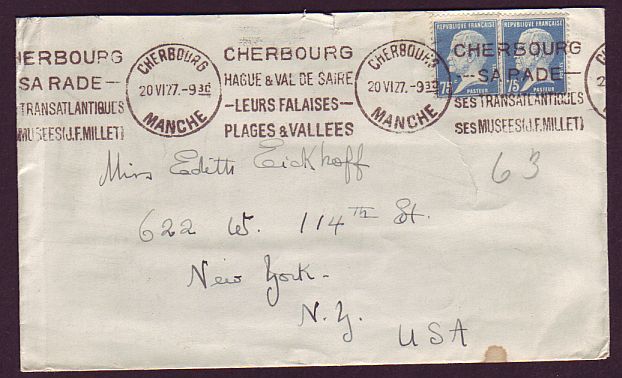 HERBOURG
SA RADE —
TRANSATLANTIQUES
MUSEES (J.F. MILLET)
CHERBOURG
20 VI 27. - 9 30
MANCHE
CHERBOURG
HAGUE & VAL DE SAIRE
— LEURS FALAISES —
PLAGES & VALLEES
CHERBOURG
20 VI 27. - 9 30
MANCHE
CHERBOURG
— SA RADE —
SES TRANSATLANTIQUES
SES MUSEES (J.F. MILLET)
REPUBLIQUE FRANÇAISE
75
PASTEUR
REPUBLIQUE FRANÇAISE
75
PASTEUR
Miss Edith Eickhoff
63
622 W. 114TH St.
New York.
N.Y.
USA